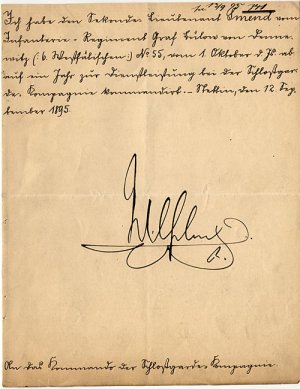 Ich habe den Sekonde Lieutenant Smend vom
Infanterie-Regiment Graf Bülow von Denne-
witz (: 6. Westfälischen :) No 55, vom 1. Oktober d. Js. ab
auf ein Jahr zur Dienstleistung bei der Schloßgar-
de-Kompagnie kommandirt. Stettin, den 12. Sep-
tember 1895.
Wilhelm
R.
An das Kommando der Schloßgarde-Kompagnie.